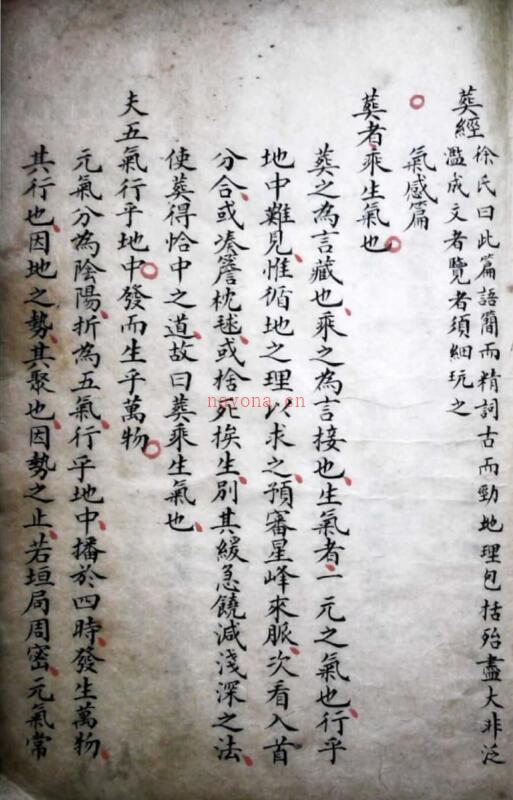 葬經
徐氏曰此篇語簡而精詞古而勁地理包括殆盡大非泛
濫成文者覽者須細玩之
氣感篇
葬者乘生氣也
葬之為言藏也乘之為言接也生氣者一元之氣也行乎
地中難見惟循地之理以求之預審星峰來脈次看入首
分合或湊簷枕毬或捨死挨生別其緩急饒減淺深之法
使葬得恰中之道故曰葬乘生氣也
夫五氣行乎地中發而生乎萬物
元氣分為陰陽折為五氣行乎地中播於四時發生萬物
其行也因地之勢其聚也因勢之止若垣局周密元氣常
nayona.cn